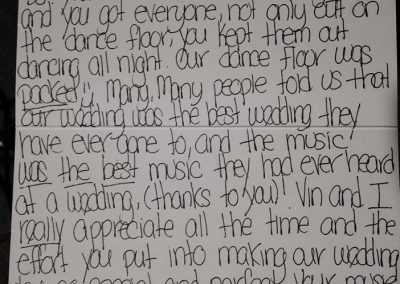 and you got everyone, not only out on
the dance floor, you kept them out
dancing all night. Our dance floor was
packed!! Many, Many people told us that
our wedding was the best wedding they
have ever gone to, and the music
was the best music they had ever heard
at a wedding, (thanks to you)! Vin and I
really appreciate all the time and the
effort you put into making our wedding
and perfect your music